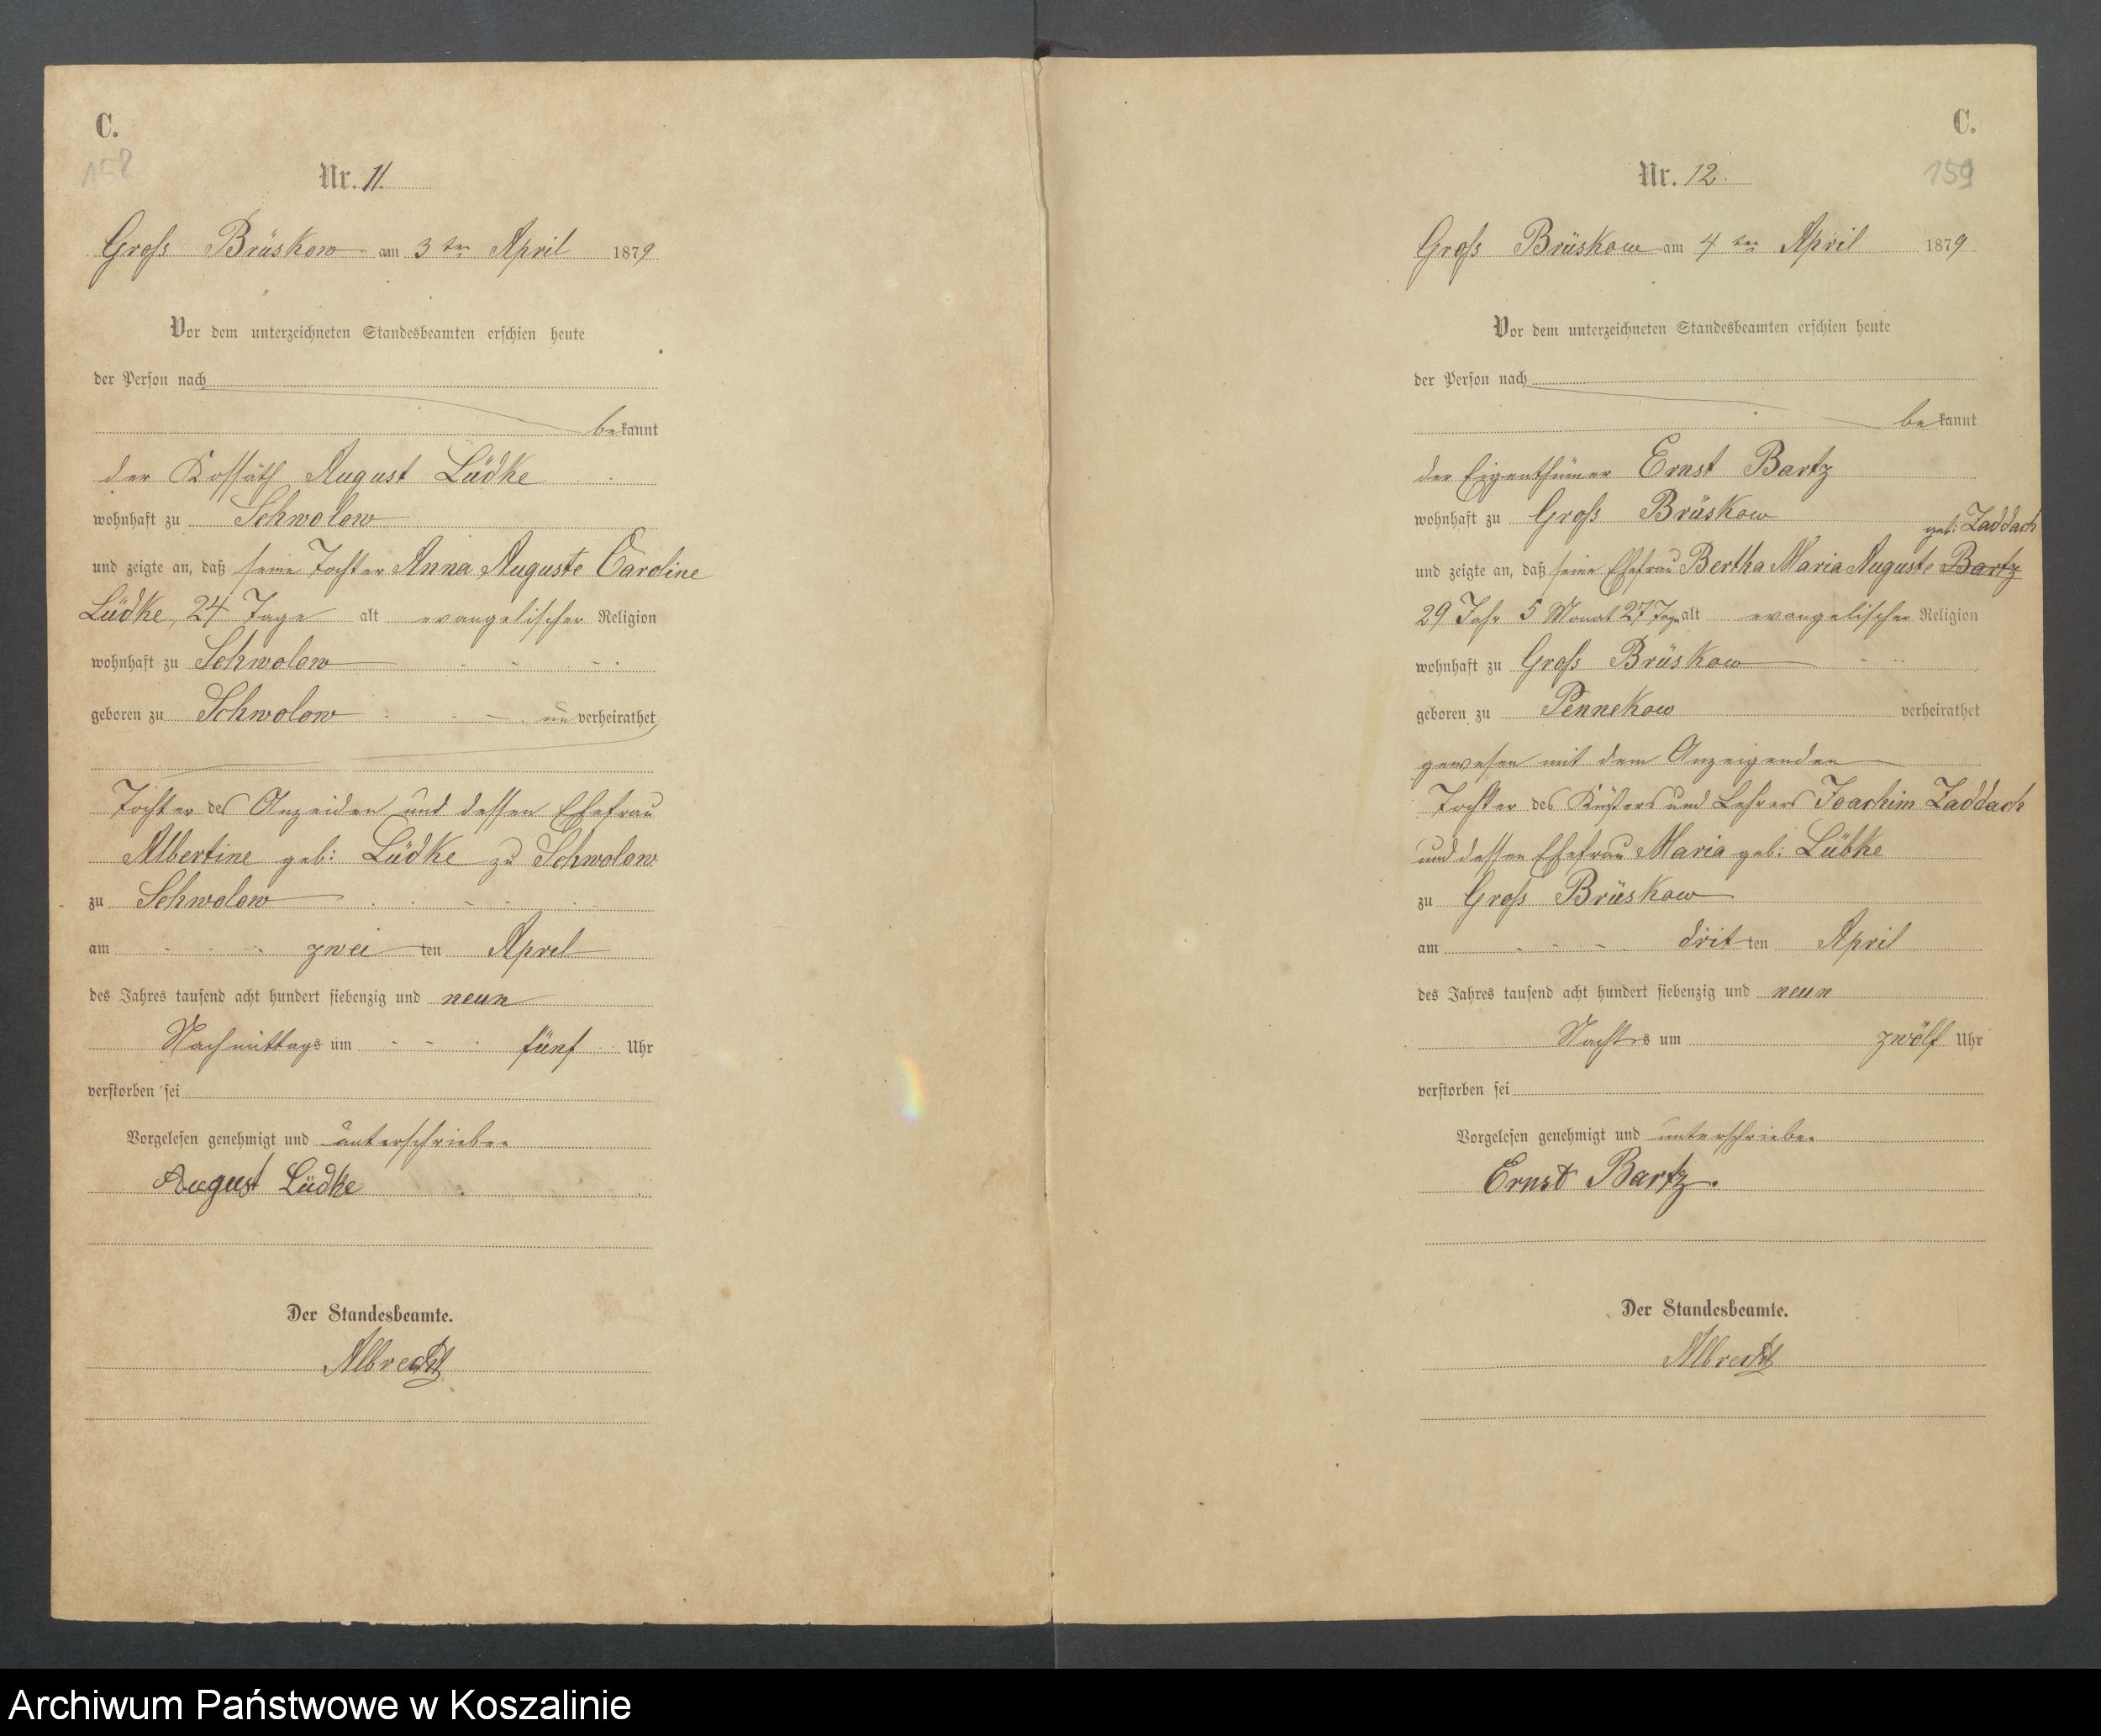 C.
158
Nr. 11.
Groß Brüskow am 3ten April 1879
Vor dem unterzeichneten Standesbeamten erschien heute
der Person nach
bekannt
der Kossäth August Lüdke
wohnhaft zu Schwolow
und zeigte an, daß seine Tochter Anna Auguste Caroline
Lüdke, 24 Tage alt evangelischer Religion
wohnhaft zu Schwolow
geboren zu Schwolow unverheirathet
Tochter des Anzeiden und dessen Ehefrau
Albertine geb: Lüdke zu Schwolow
zu Schwolow
am zweiten Aprel
des Jahres tausend acht hundert siebenzig und neun
Nachmittags um fünf Uhr
verstorben sei
Vorgelesen genehmigt und unterschrieben
August Lüdke
Der Standesbeamte.
Albrecht
C.
159
Nr. 12.
Groß Brüskow am 4ten April 1879
Vor dem unterzeichneten Standesbeamten erschien heute
der Person nach
bekannt
der Eigenthümer Ernst Bartz
wohnhaft zu Groß Brüskow
geb: Zaddach
und zeigte an, daß seine Ehefrau Bertha Maria Auguste Bartz
29 Jahr 5 Monat 27 Tage alt evangelischer Religion
wohnhaft zu Groß Brüskow
geboren zu Pennekow verheirathet
gewesen mit dem Anzeigenden
Tochter des Küsters und Lehrers Joachim Zaddach
und dessen Ehefrau Maria geb: Lübke
zu Groß Brüskow
am dritten April
des Jahres tausend acht hundert siebenzig und neun
Nachts um zwölf Uhr
verstorben sei
Vorgelesen genehmigt und unterschrieben
Ernst Bartz.
Der Standesbeamte.
Albrecht
Archiwum Państwowe w Koszalinie